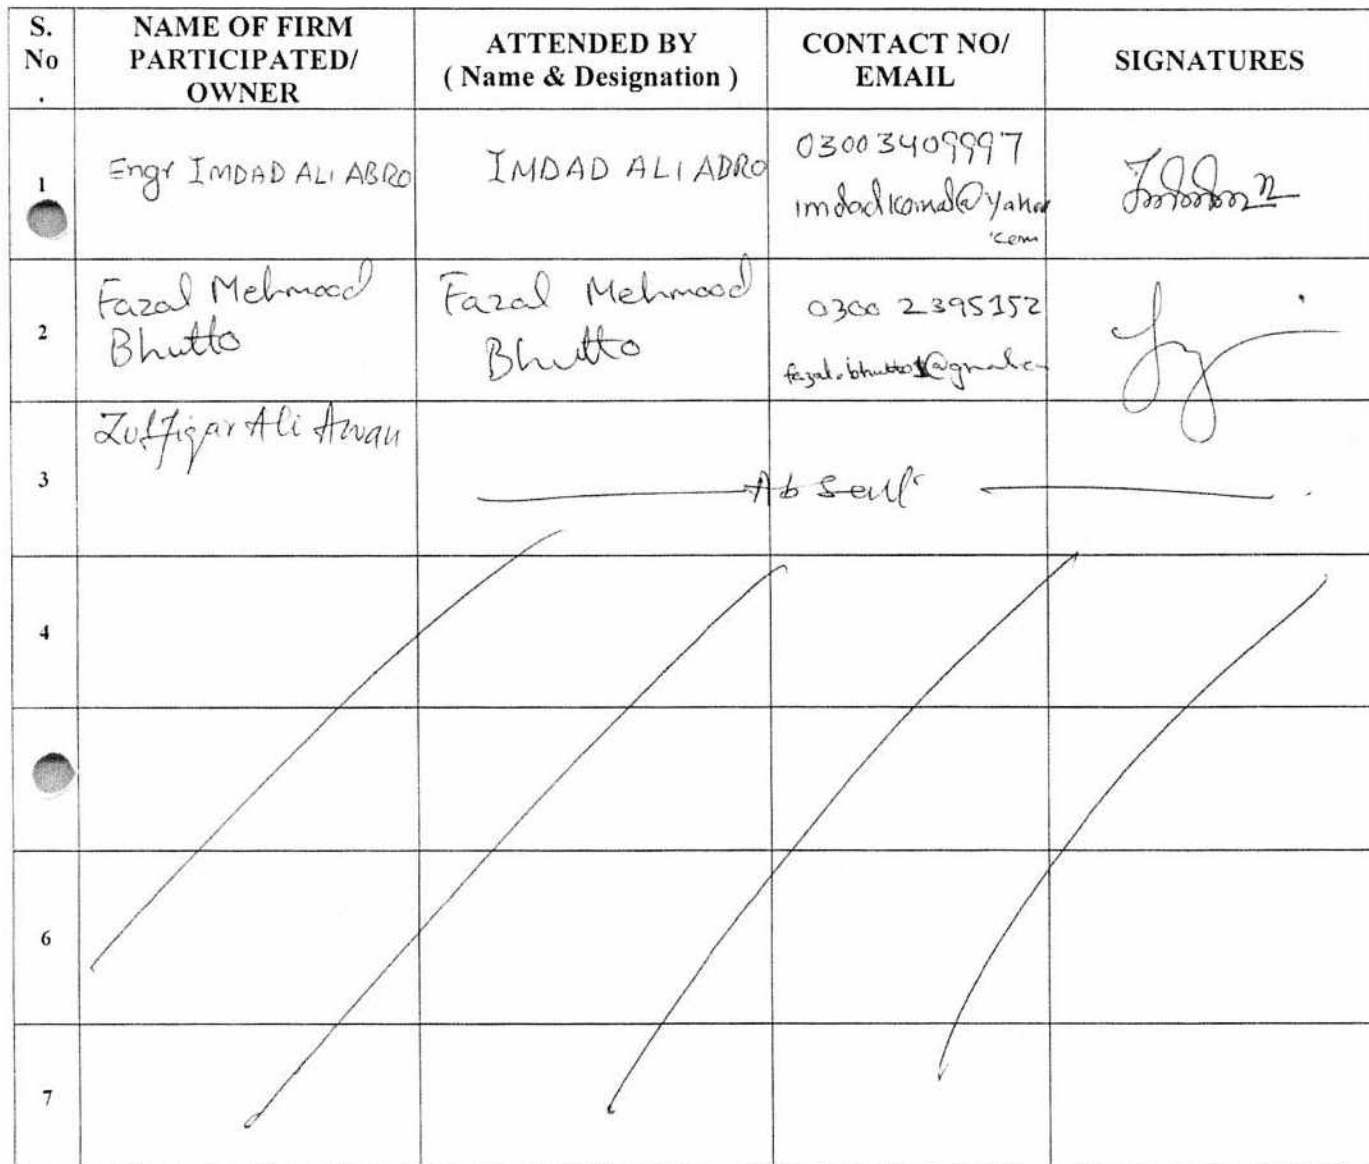 S.
No
.
NAME OF FIRM
PARTICIPATED/
OWNER
ATTENDED BY
( Name & Designation )
CONTACT NO/
EMAIL
SIGNATURES
1
Engr IMDAD ALI ABRO
IMDAD ALI ABRO
03003409997
imdadkamal@yahoo
.com
2
Fazal Mehmood
Bhutto
Fazal Mehmood
Bhutto
0300 2395152
fazal.bhutto1@gmail.com
3
Zulfiqar Ali Awan
Absent
4
6
7